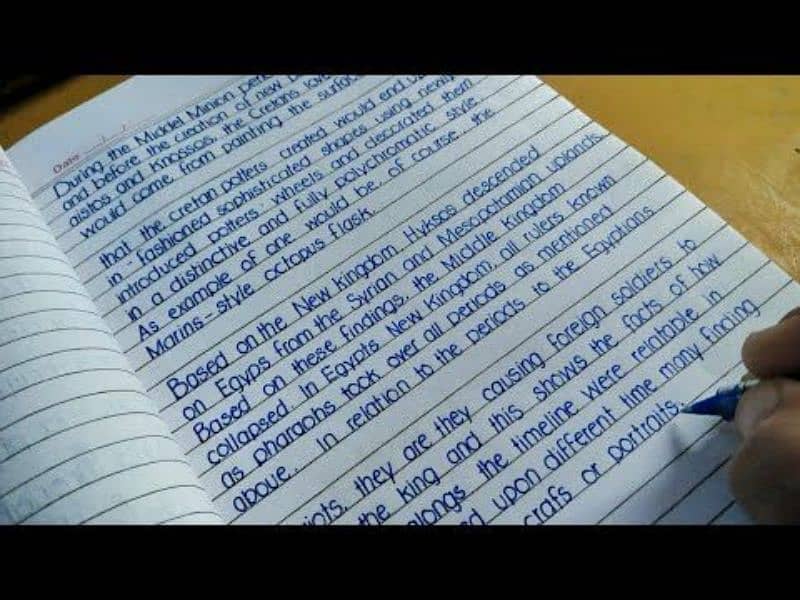 Date
During the Middel Minion
and before the creation of new
aistos and Knossos, the Cretans love
would come from painting the surface
that the cretan potters created would end
in - fashioned sophisticated shapes using newly
introduced potters' wheels and decorated them
in a distinctive and fully polychromatic style
As example of one would be, of course, the
Marins - style octopus flask.
Based on the New kingdom, Hyksos descended
on Egyps from the Syrian and Mesopotamian uplands
Based on these findings, the Middle Kingdom
collapsed in Egypts New Kingdom, all rulers known
as pharaohs took over all periods as mentioned
above.. In relation to the periods to the Egyptians
iots, they are they causing foreign soldiers to
the king and this shows the facts of how
alongs the timeline were relatable in
ed upon different time many finding
crafs or portraits.